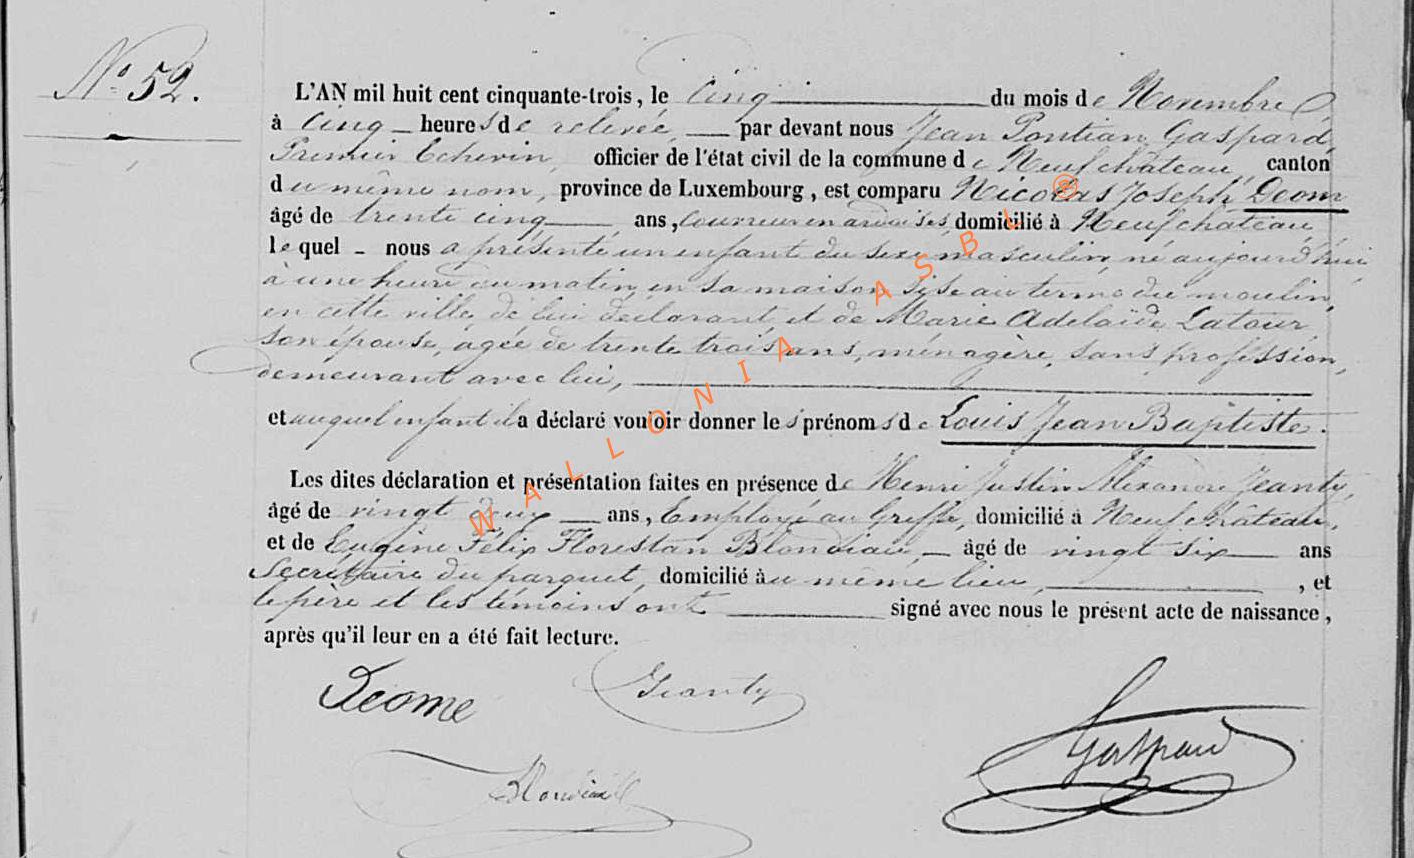 N° 52.
L'AN mil huit cent cinquante-trois, le Cinq du mois de Novembre
à Cinq heures de relevée, par devant nous Jean Pontian Gaspard,
Premier Echevin, officier de l'état civil de la commune de Neufchâteau, canton
du même nom, province de Luxembourg, est comparu Nicolas Joseph Deom
âgé de trente cinq ans, Couvreur en ardoises, domicilié à Neufchâteau,
lequel nous a présenté un enfant du sexe masculin, né aujourd'hui
à une heure du matin, en sa maison sise au terme du moulin,
en cette ville, de lui déclarant, et de Marie Adelaïde Latour
son épouse, agée de trente trois ans, ménagère, sans profession,
demeurant avec lui,
et auquel enfant il a déclaré vouloir donner les prénoms de Louis Jean Baptiste.
Les dites déclaration et présentation faites en présence de Henri Justin Alexandre Jeanty,
âgé de vingt deux ans, Employé au Greffe, domicilié à Neufchâteau,
et de Eugène Félix Florestan Blondiau, âgé de vingt six ans
Secrétaire du parquet, domicilié au même lieu, , et
le père et les témoins ont signé avec nous le présent acte de naissance,
après qu'il leur en a été fait lecture.
Deome Jeanty
Gaspard
Blondiau
WALLONIA ASBL ®